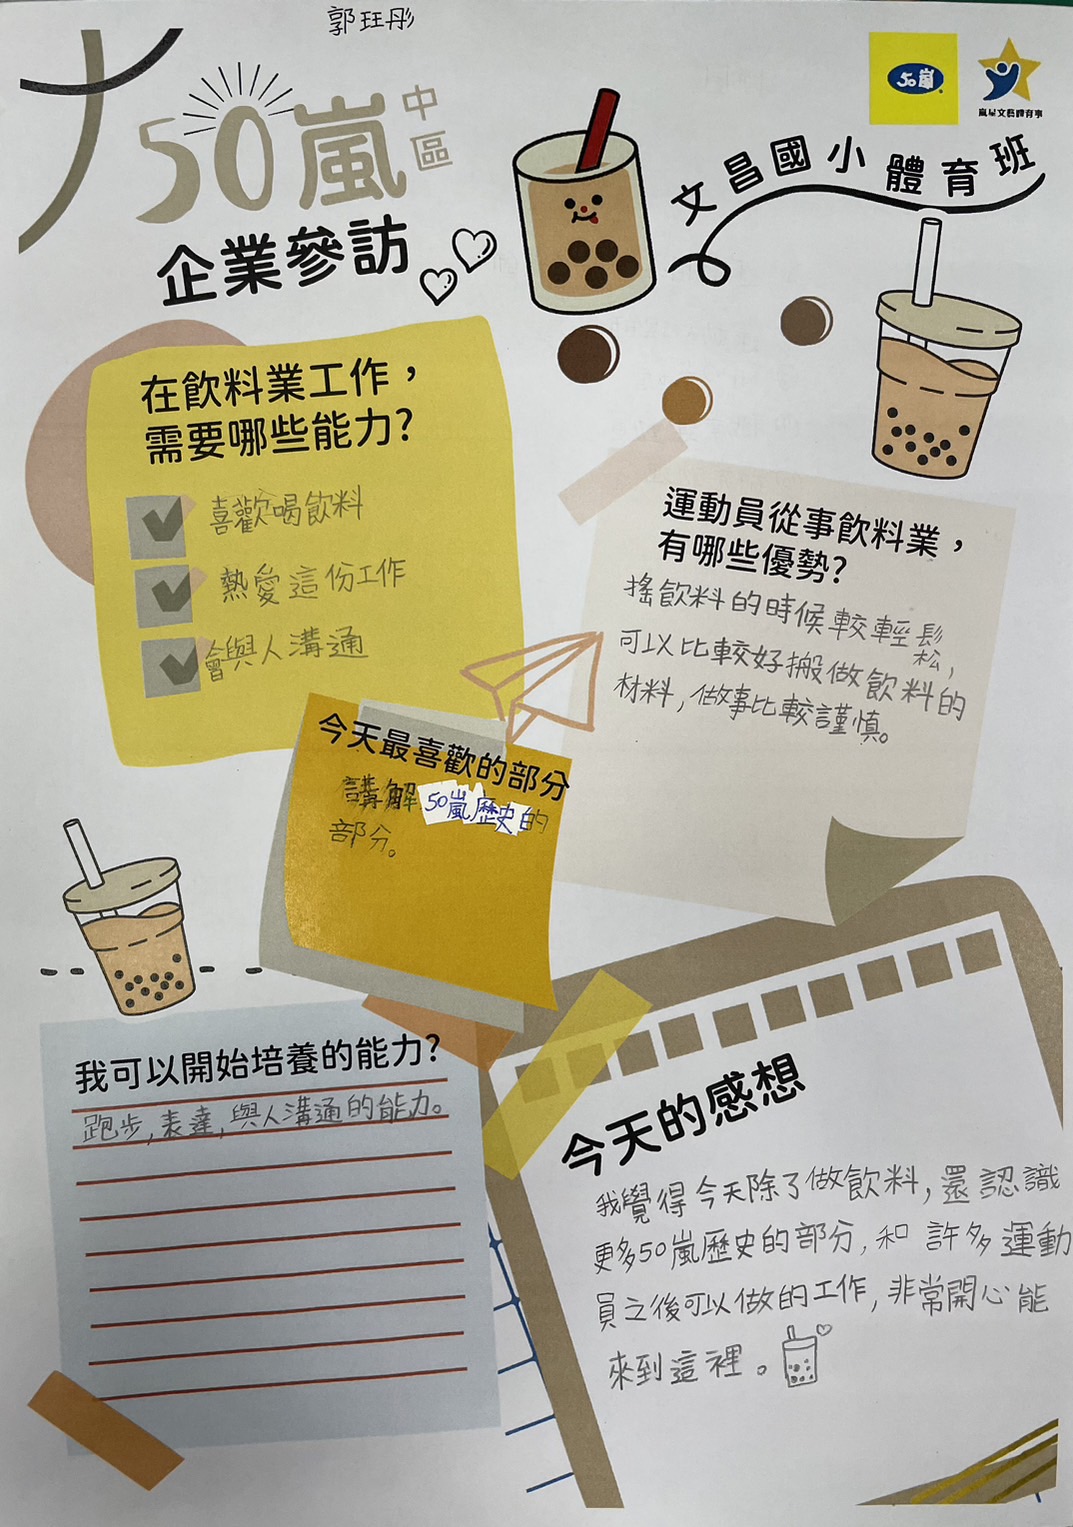 郭玨彤
50嵐
中區
企業參訪
50嵐
嵐星文藝體育事
文昌國小體育班
在飲料業工作，
需要哪些能力?
喜歡喝飲料
熱愛這份工作
會與人溝通
運動員從事飲料業，
有哪些優勢?
搖飲料的時候較輕鬆,
可以比較好搬做飲料的
材料,做事比較謹慎。
今天最喜歡的部分
講解50嵐歷史的
部分。
我可以開始培養的能力?
跑步,表達,與人溝通的能力。
今天的感想
我覺得今天除了做飲料,還認識
更多50嵐歷史的部分,和許多運動
員之後可以做的工作,非常開心能
來到這裡。